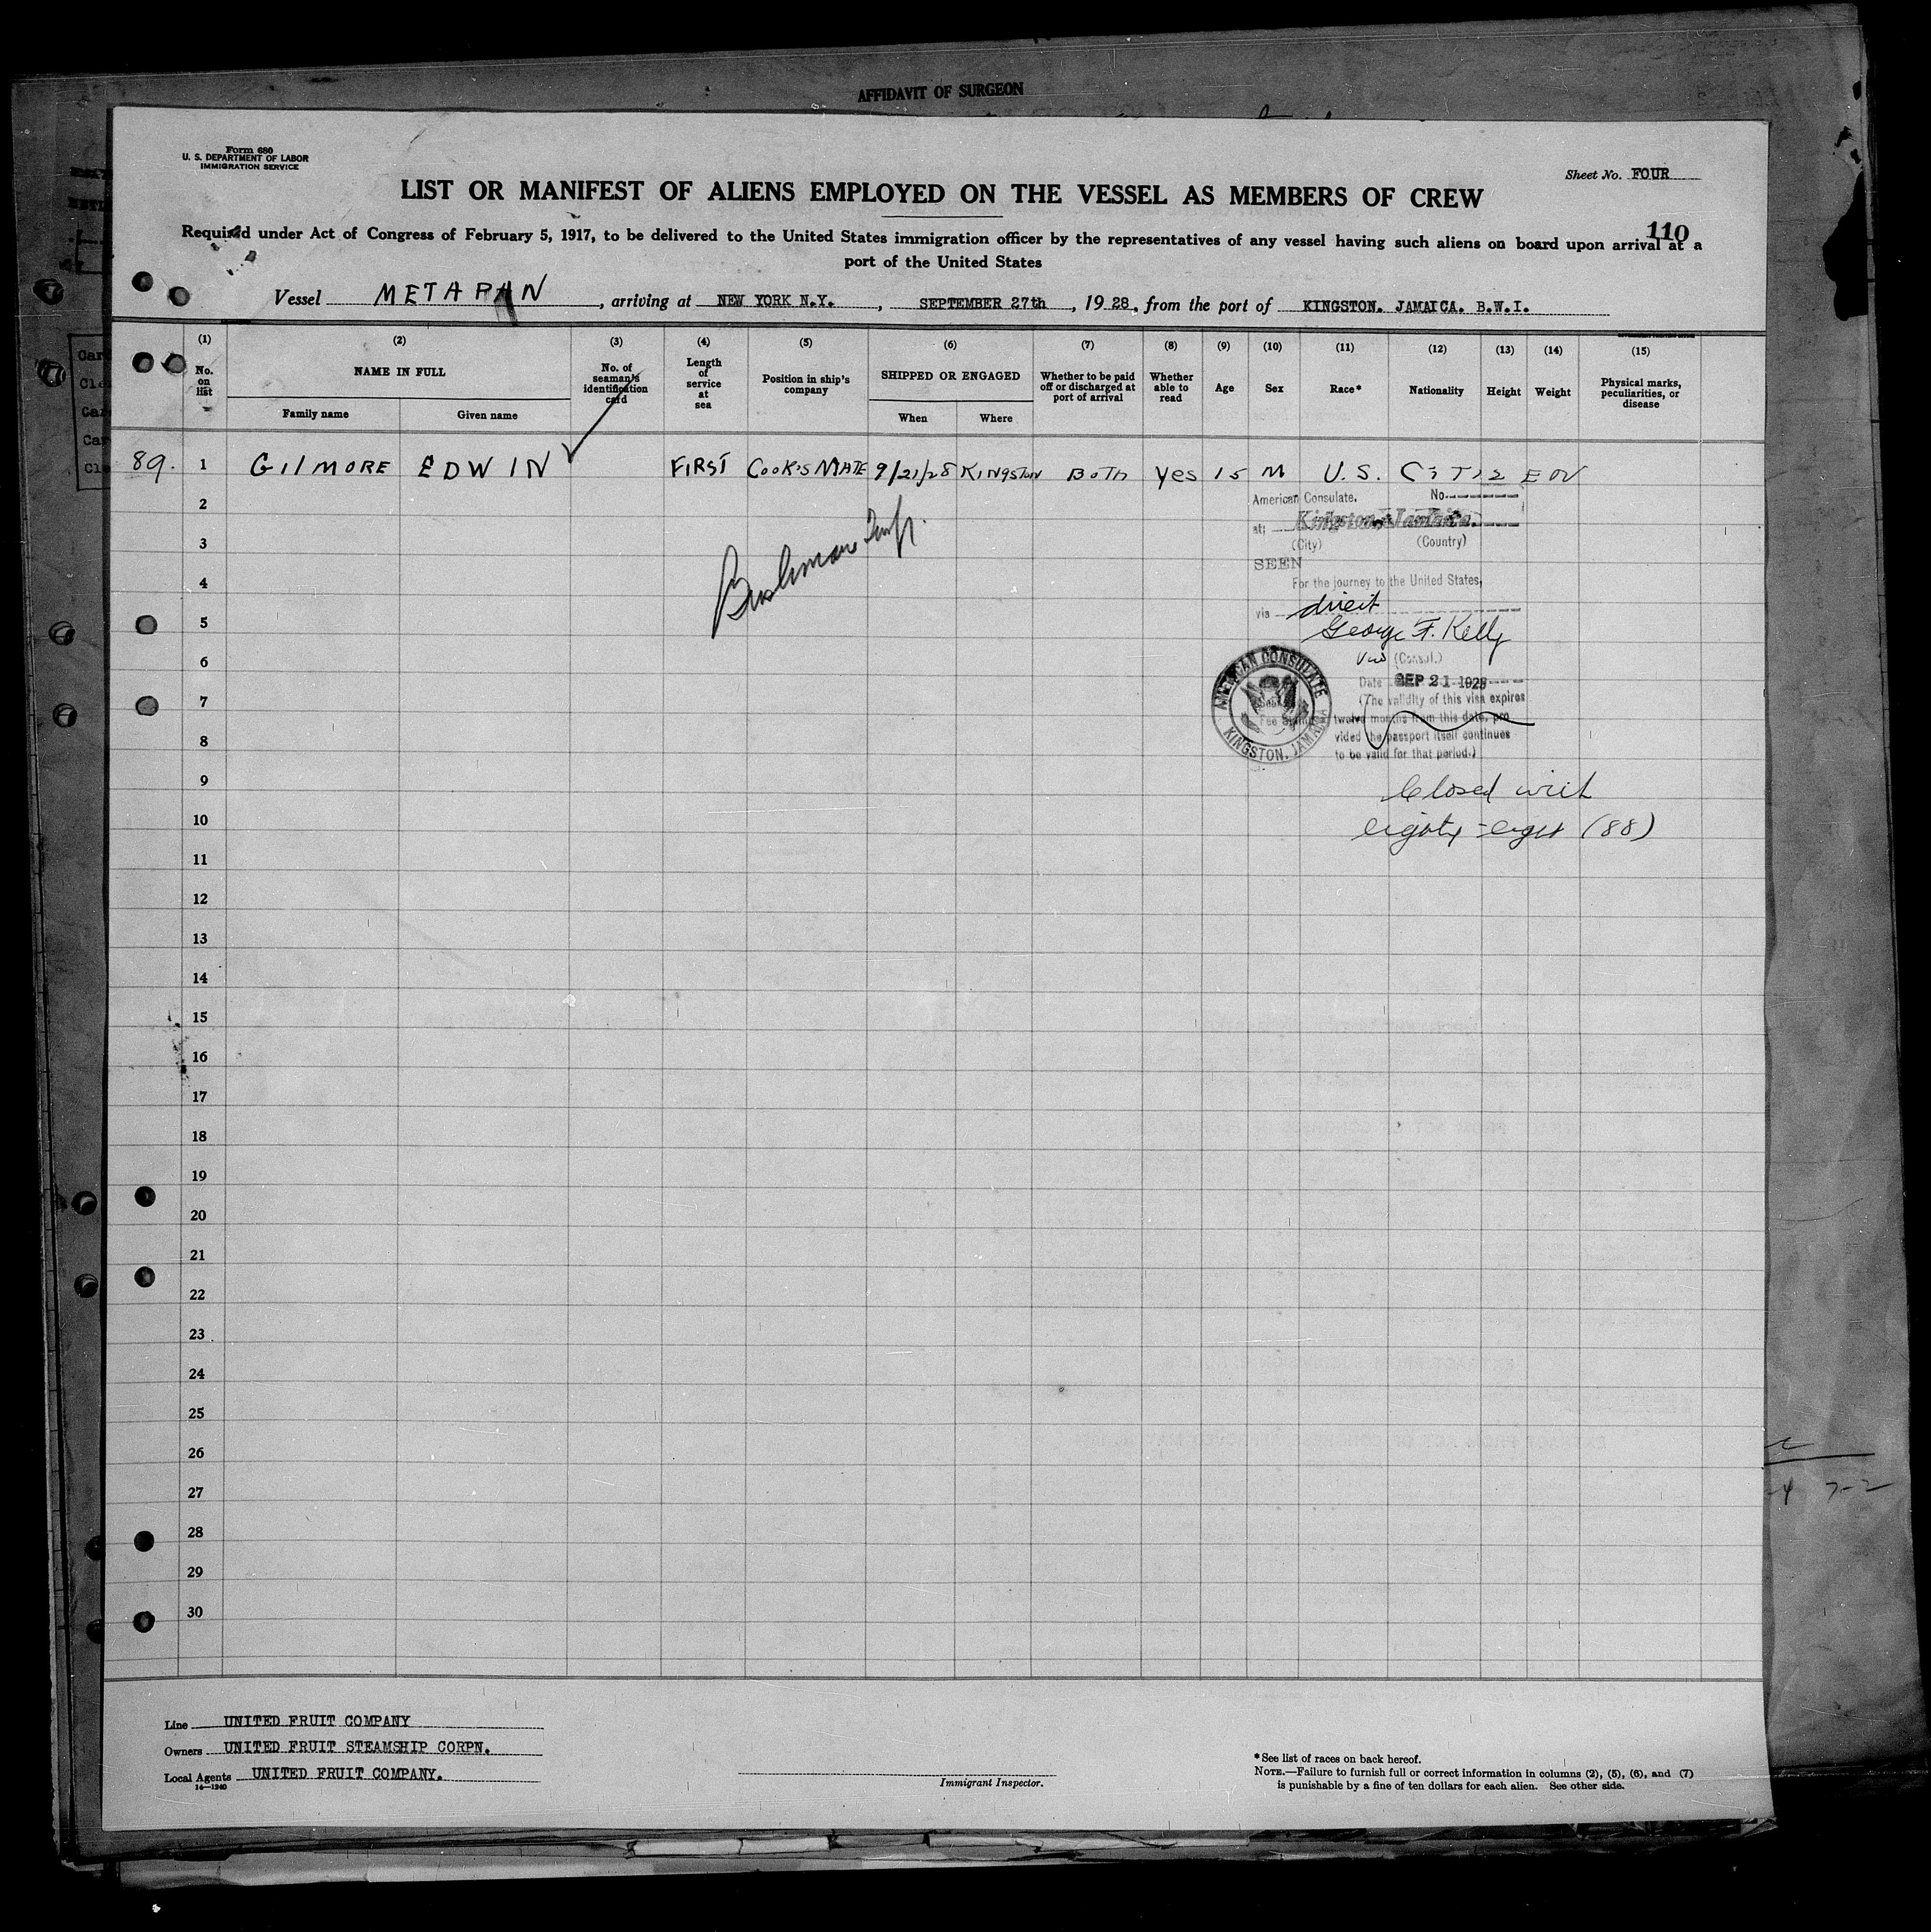 AFFIDAVIT OF SURGEON
Form 680
U. S. DEPARTMENT OF LABOR
IMMIGRATION SERVICE
Sheet No. FOUR
LIST OR MANIFEST OF ALIENS EMPLOYED ON THE VESSEL AS MEMBERS OF CREW
110
Required under Act of Congress of February 5, 1917, to be delivered to the United States immigration officer by the representatives of any vessel having such aliens on board upon arrival at a
port of the United States
Vessel METAPAN, arriving at NEW YORK N.Y., SEPTEMBER 27th, 1928, from the port of KINGSTON. JAMAICA. B.W.I.
(1) (2) (3) (4) (5) (6) (7) (8) (9) (10) (11) (12) (13) (14) (15)
No. on list
NAME IN FULL
Family name Given name
No. of seaman's identification card
Length of service at sea
Position in ship's company
SHIPPED OR ENGAGED
When Where
Whether to be paid off or discharged at port of arrival
Whether able to read
Age
Sex
Race*
Nationality
Height
Weight
Physical marks, peculiarities, or disease
89. 1 GILMORE EDWIN FIRST COOK'S MATE 9/21/28 KINGSTON BOTH Yes 15 M U.S. CITIZEN
2
3
4
5
6
7
8
9
10
11
12
13
14
15
16
17
18
19
20
21
22
23
24
25
26
27
28
29
30
American Consulate. No.
at; Kingston, Jamaica.
(City) (Country)
SEEN
For the journey to the United States,
via direct
George F. Kelly
Vice (Consul.)
Date SEP 21 1928
(The validity of this visa expires
twelve months from this date, pro
vided the passport itself continues
to be valid for that period.)
AMERICAN CONSULATE
KINGSTON, JAMAICA
Closed with
eighty-eight (88)
Line UNITED FRUIT COMPANY
Owners UNITED FRUIT STEAMSHIP CORPN.
Local Agents UNITED FRUIT COMPANY.
14—1240
Immigrant Inspector.
*See list of races on back hereof.
NOTE.—Failure to furnish full or correct information in columns (2), (5), (6), and (7)
is punishable by a fine of ten dollars for each alien. See other side.